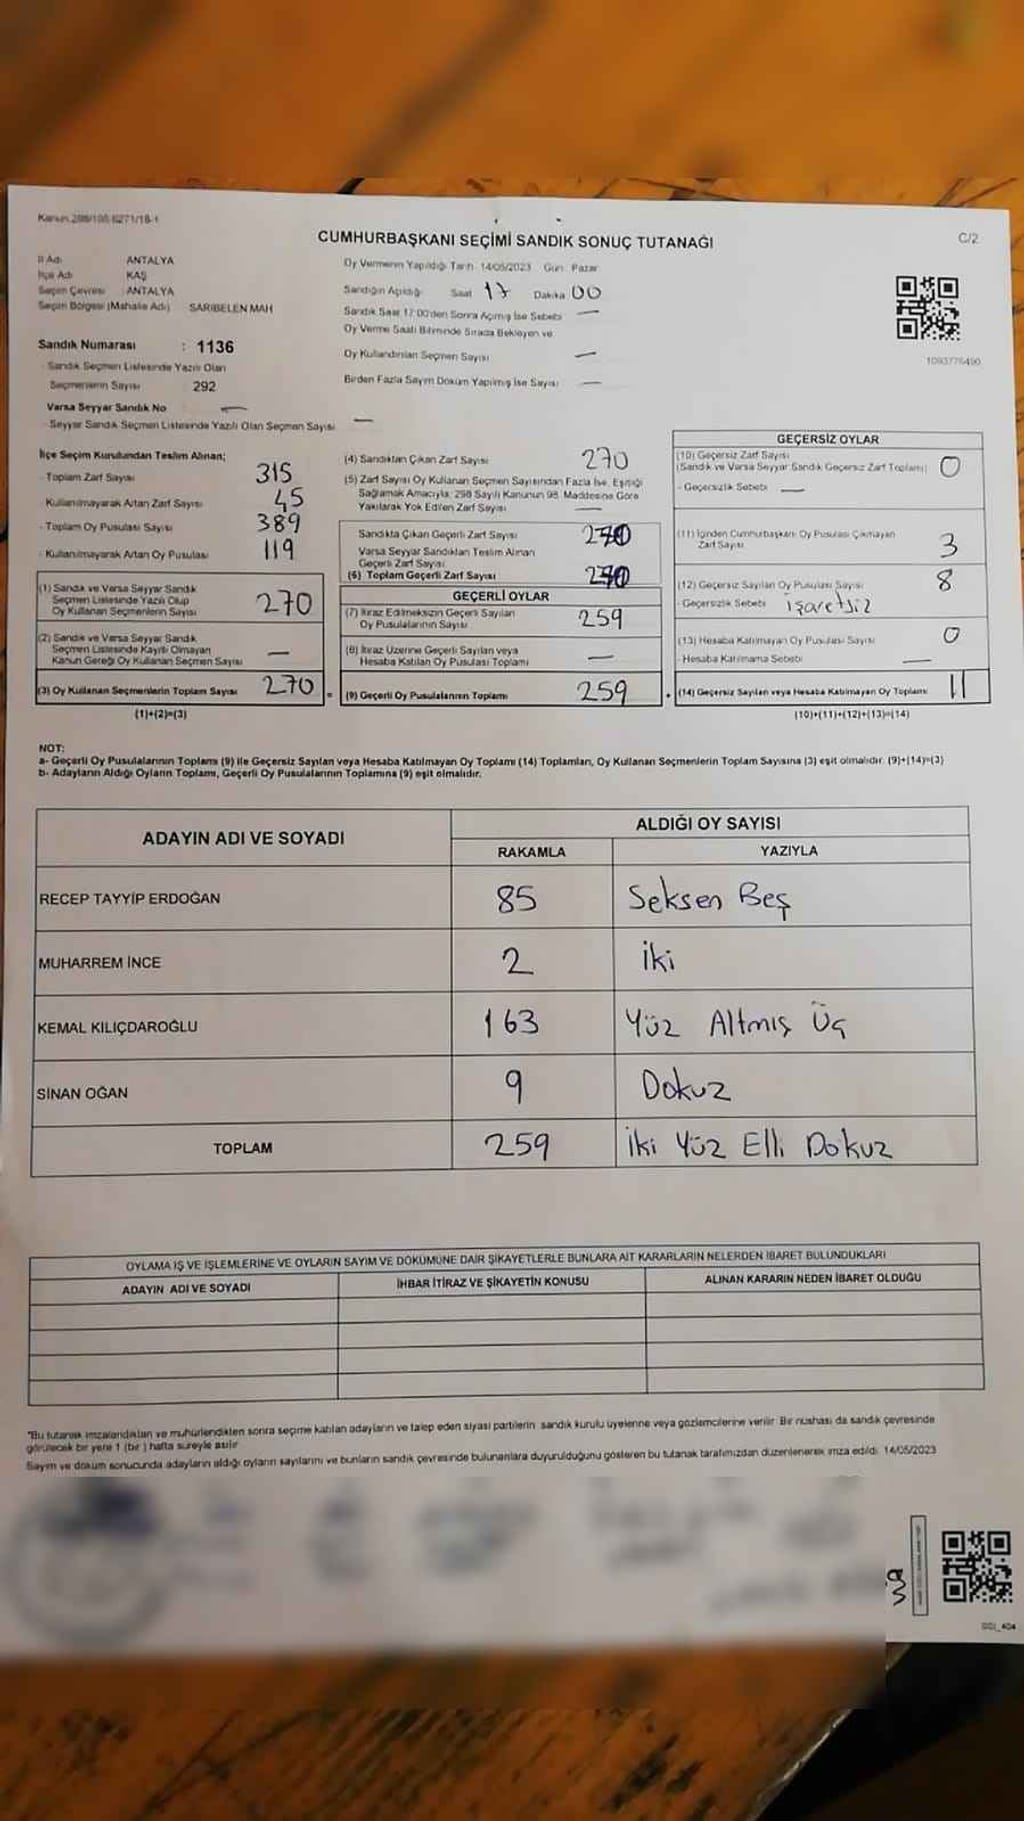 Kanun.298/105-6271/18-1
CUMHURBAŞKANI SEÇİMİ SANDIK SONUÇ TUTANAĞI
C/2
İl Adı ANTALYA
İlçe Adı KAŞ
Seçim Çevresi : ANTALYA
Seçim Bölgesi (Mahalle Adı) SARIBELEN MAH
Sandık Numarası : 1136
- Sandık Seçmen Listesinde Yazılı Olan
Seçmenlerin Sayısı 292
Varsa Seyyar Sandık No —
- Seyyar Sandık Seçmen Listesinde Yazılı Olan Seçmen Sayısı —
Oy Vermenin Yapıldığı Tarih 14/05/2023 Gün: Pazar
Sandığın Açıldığı Saat 17 Dakika 00
Sandık Saat 17:00'den Sonra Açılmış İse Sebebi —
Oy Verme Saati Bitiminde Sırada Bekleyen ve
Oy Kullandırılan Seçmen Sayısı —
Birden Fazla Sayım Döküm Yapılmış İse Sayısı —
1093776490
İlçe Seçim Kurulundan Teslim Alınan;
- Toplam Zarf Sayısı 315
Kullanılmayarak Artan Zarf Sayısı 45
- Toplam Oy Pusulası Sayısı 389
- Kullanılmayarak Artan Oy Pusulası 119
(1) Sandık ve Varsa Seyyar Sandık
Seçmen Listesinde Yazılı Olup
Oy Kullanan Seçmenlerin Sayısı 270
(2) Sandık ve Varsa Seyyar Sandık
Seçmen Listesinde Kayıtlı Olmayan
Kanun Gereği Oy Kullanan Seçmen Sayısı —
(3) Oy Kullanan Seçmenlerin Toplam Sayısı 270
(1)+(2)=(3)
(4) Sandıktan Çıkan Zarf Sayısı 270
(5) Zarf Sayısı Oy Kullanan Seçmen Sayısından Fazla İse, Eşitliği
Sağlamak Amacıyla, 298 Sayılı Kanunun 98. Maddesine Göre
Yakılarak Yok Edilen Zarf Sayısı —
Sandıkta Çıkan Geçerli Zarf Sayısı 270
Varsa Seyyar Sandıktan Teslim Alınan
Geçerli Zarf Sayısı
(6) Toplam Geçerli Zarf Sayısı 270
GEÇERLİ OYLAR
(7) İtiraz Edilmeksizin Geçerli Sayılan
Oy Pusulalarının Sayısı 259
(8) İtiraz Üzerine Geçerli Sayılan veya
Hesaba Katılan Oy Pusulası Toplamı —
= (9) Geçerli Oy Pusulalarının Toplamı 259
GEÇERSİZ OYLAR
(10) Geçersiz Zarf Sayısı
(Sandık ve Varsa Seyyar Sandık Geçersiz Zarf Toplamı) 0
- Geçersizlik Sebebi —
(11) İçinden Cumhurbaşkanı Oy Pusulası Çıkmayan
Zarf Sayısı 3
(12) Geçersiz Sayılan Oy Pusulası Sayısı 8
- Geçersizlik Sebebi işaretsiz
(13) Hesaba Katılmayan Oy Pusulası Sayısı 0
- Hesaba Katılmama Sebebi —
+ (14) Geçersiz Sayılan veya Hesaba Katılmayan Oy Toplamı 11
(10)+(11)+(12)+(13)=(14)
NOT:
a- Geçerli Oy Pusulalarının Toplamı (9) ile Geçersiz Sayılan veya Hesaba Katılmayan Oy Toplamı (14) Toplamları, Oy Kullanan Seçmenlerin Toplam Sayısına (3) eşit olmalıdır. (9)+(14)=(3)
b- Adayların Aldığı Oyların Toplamı, Geçerli Oy Pusulalarının Toplamına (9) eşit olmalıdır.
ADAYIN ADI VE SOYADI
ALDIĞI OY SAYISI
RAKAMLA YAZIYLA
RECEP TAYYİP ERDOĞAN 85 Seksen Beş
MUHARREM İNCE 2 İki
KEMAL KILIÇDAROĞLU 163 Yüz Altmış Üç
SİNAN OĞAN 9 Dokuz
TOPLAM 259 İki Yüz Elli Dokuz
OYLAMA İŞ VE İŞLEMLERİNE VE OYLARIN SAYIM VE DÖKÜMÜNE DAİR ŞİKAYETLERLE BUNLARA AİT KARARLARIN NELERDEN İBARET BULUNDUKLARI
ADAYIN ADI VE SOYADI İHBAR İTİRAZ VE ŞİKAYETİN KONUSU ALINAN KARARIN NEDEN İBARET OLDUĞU
"Bu tutanak imzalandıktan ve mühürlendikten sonra seçime katılan adayların ve talep eden siyasi partilerin sandık kurulu üyelerine veya gözlemcilerine verilir. Bir nüshası da sandık çevresinde
görülecek bir yere 1 (bir) hafta süreyle asılır
Sayım ve döküm sonucunda adayların aldığı oyların sayılarını ve bunların sandık çevresinde bulunanlara duyurulduğunu gösteren bu tutanak tarafımızdan düzenlenerek imza edildi. 14/05/2023